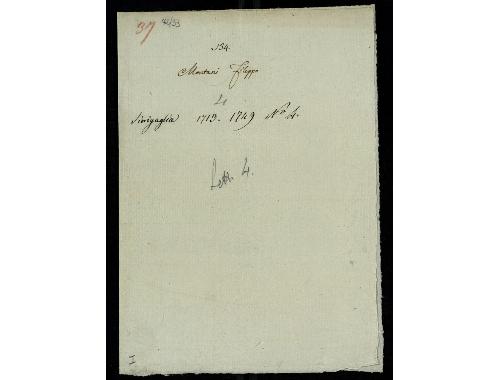 37 42/33
134.
Montani Filippo
4
Sinigaglia 1713. 1749 N.º 4.
Lett. 4.
I